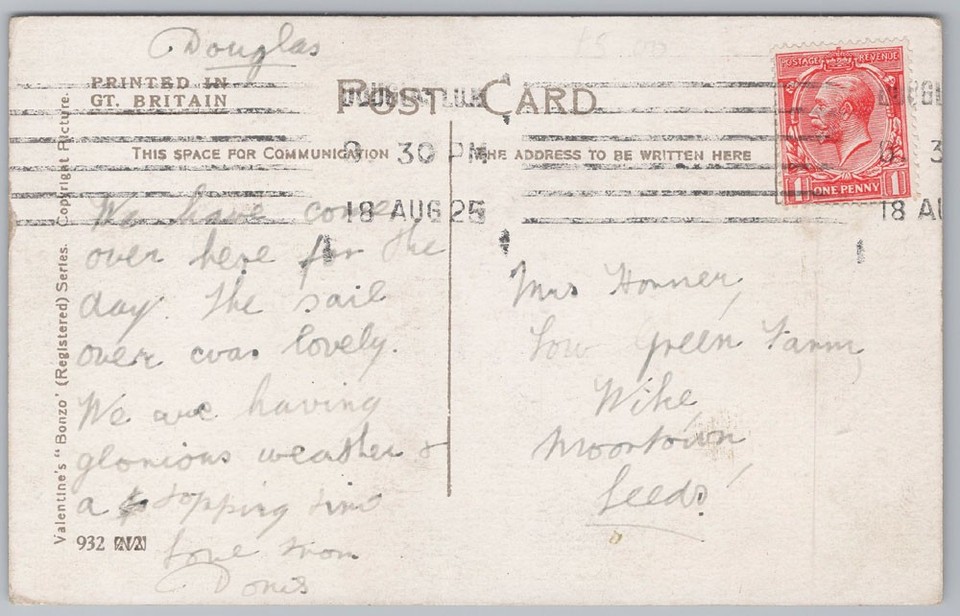 Douglas
PRINTED IN
GT. BRITAIN
POST CARD
THIS SPACE FOR COMMUNICATION
THE ADDRESS TO BE WRITTEN HERE
3 30 PM
18 AUG 25
POSTAGE REVENUE
1 ONE PENNY 1
18 AU
We have come
over here for the
day. The sail
over was lovely.
We are having
glorious weather &
a topping time
Love from
Doris
Mrs Horner
Low Green Farm
Wike
Moortown
Leeds
Valentine's "Bonzo" (Registered) Series. Copyright Picture.
932